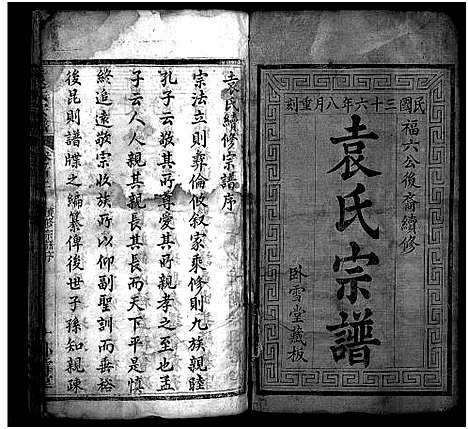 民國三十六年八月重刻
福六公後裔續修
袁氏宗譜
卧雪堂藏板
袁氏續修宗譜序
宗法立則彝倫攸叙家乘修則九族親睦
孔子云敬其所尊愛其所親孝之至也孟
子云人人親其親長其長而天下平是慎
終追遠敬宗收族所以仰副聖訓而垂裕
後昆則譜牒之編纂俾後世子孫知親疎